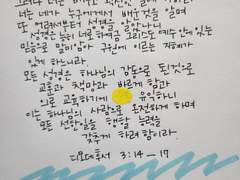 너는 네가 누구에게서 배운것을 알며
또 어려서부터 성경을 알았나니
성경은 능히 너로 하여금 그리스도 예수 안에 있는
믿음으로 말미암아 구원에 이르는 지혜가
있게 하느니라.
모든 성경은 하나님의 감동으로 된것으로
교훈과 책망과 바르게 함과
의로 교육하기에 유익하니
이는 하나님의 사람으로 온전하게 하며
모든 선한일을 행할 능력을
갖추게 하려 함이라.
디모데후서 3:14-17